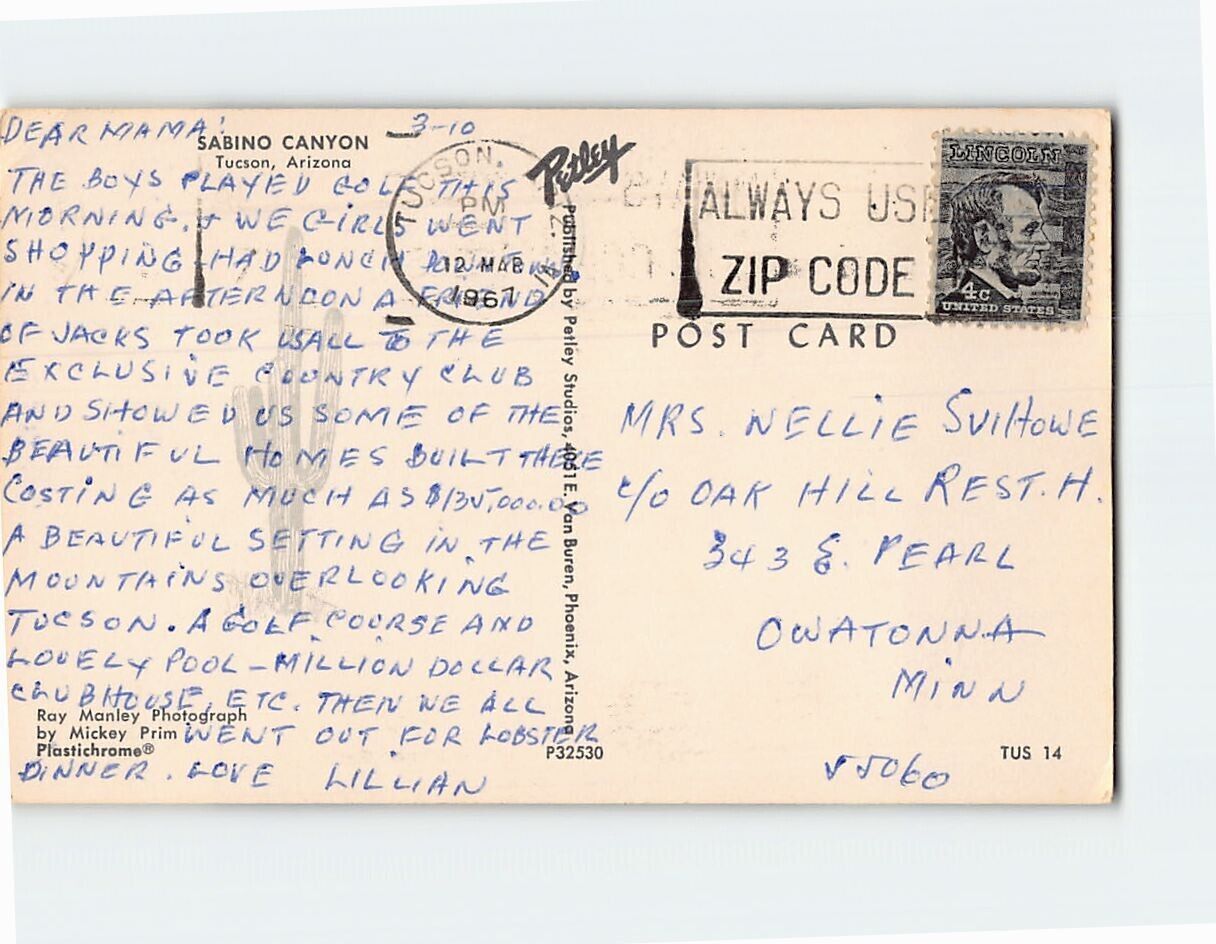 DEAR MAMA! 3-10
SABINO CANYON
Tucson, Arizona
THE BOYS PLAYED GOLF THIS
MORNING, & WE GIRLS WENT
SHOPPING - HAD LUNCH DOWNTOWN
IN THE AFTERNOON A FRIEND
OF JACKS TOOK US ALL TO THE
EXCLUSIVE COUNTRY CLUB
AND SHOWED US SOME OF THE
BEAUTIFUL HOMES BUILT THERE
COSTING AS MUCH AS $135,000.00
A BEAUTIFUL SETTING IN THE
MOUNTAINS OVERLOOKING
TUCSON. A GOLF COURSE AND
LOVELY POOL - MILLION DOLLAR
CLUBHOUSE, ETC. THEN WE ALL
WENT OUT FOR LOBSTER
DINNER. LOVE LILLIAN
Ray Manley Photograph
by Mickey Prim
Plastichrome®
Petley
Published by Petley Studios, 4051 E. Van Buren, Phoenix, Arizona
P32530
TUCSON, ARIZ.
PM
12 MAR
1967
ALWAYS USE
ZIP CODE
LINCOLN
4c
UNITED STATES
POST CARD
MRS. NELLIE SVIHOWE
c/o OAK HILL REST. H.
343 E. PEARL
OWATONNA
MINN
55060
TUS 14